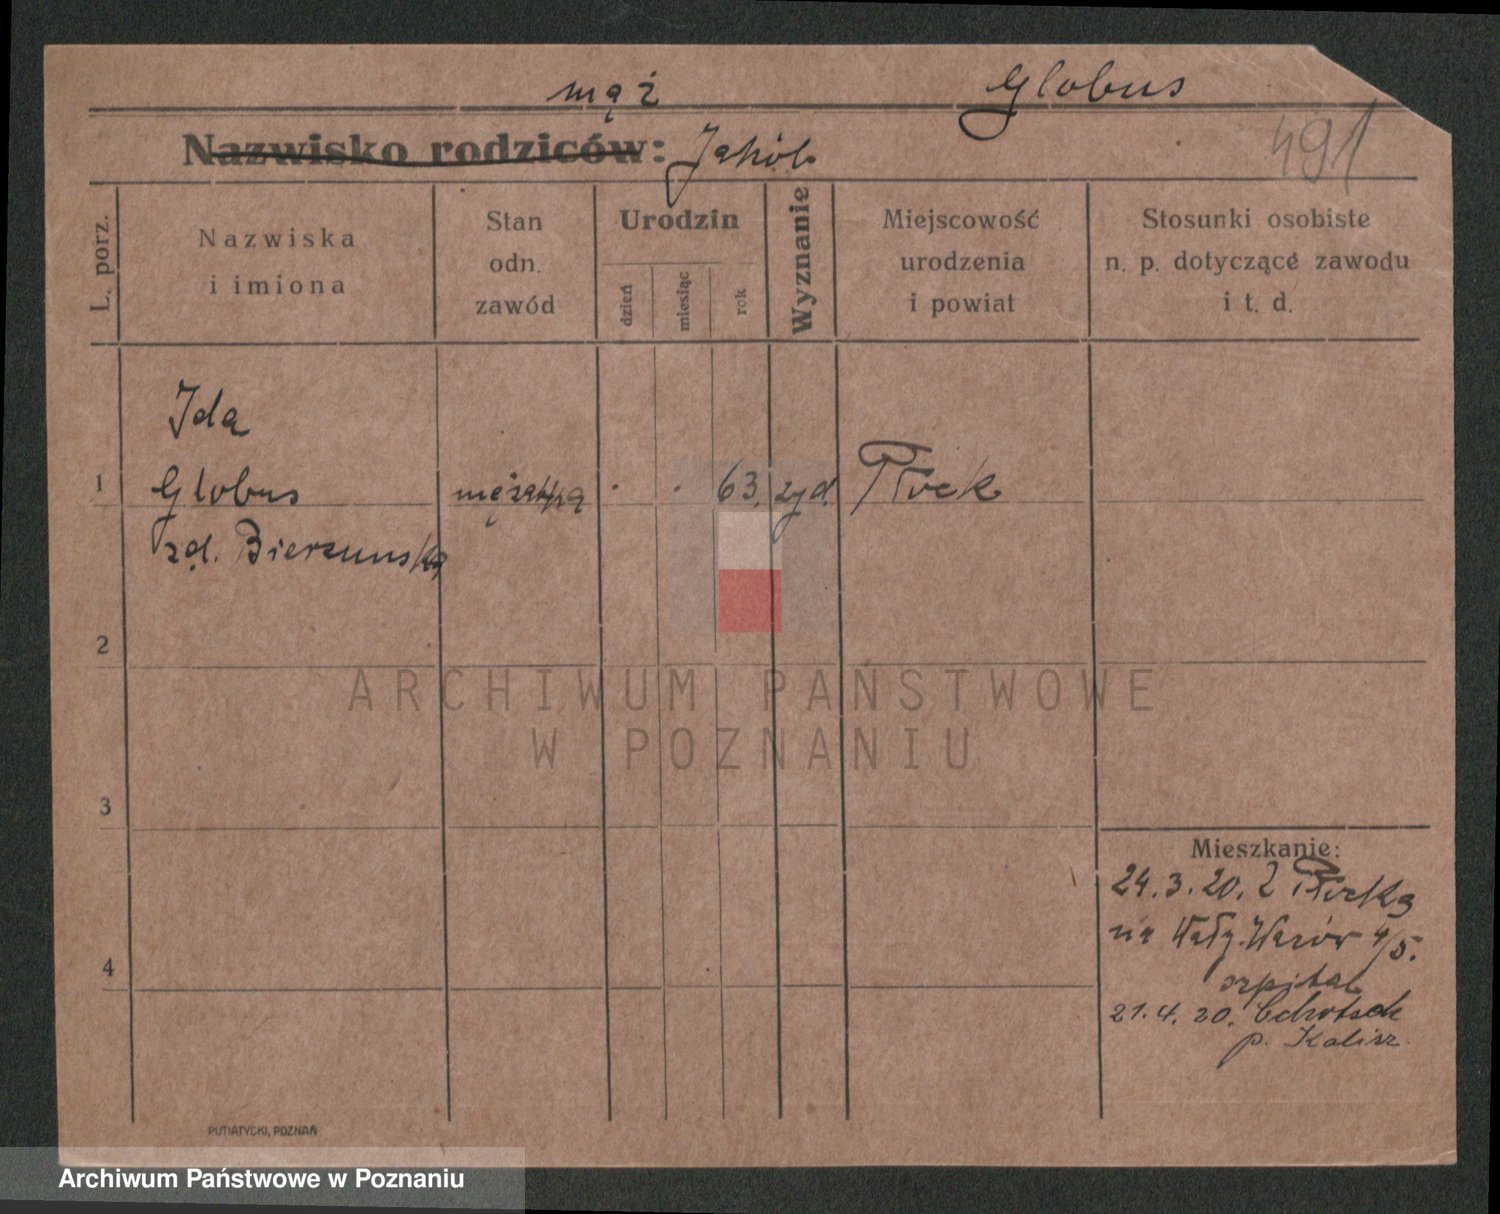 mąż Globus
Nazwisko rodziców: Jakób
491
L. porz.
Nazwiska
i imiona
Stan
odn.
zawód
Urodzin
dzień
miesiąc
rok
Wyznanie
Miejscowość
urodzenia
i powiat
Stosunki osobiste
n. p. dotyczące zawodu
i t. d.
Ida
1 Globus mężatka . . 63. żyd. Płock
zd. Bierzunska
2
ARCHIWUM PAŃSTWOWE
W POZNANIU
3
Mieszkanie:
24.3.20. z Płocka
na Wały 4/5.
szpital
4
21.4.20.
p. Kalisz.
PUTIATYCKI, POZNAŃ
Archiwum Państwowe w Poznaniu